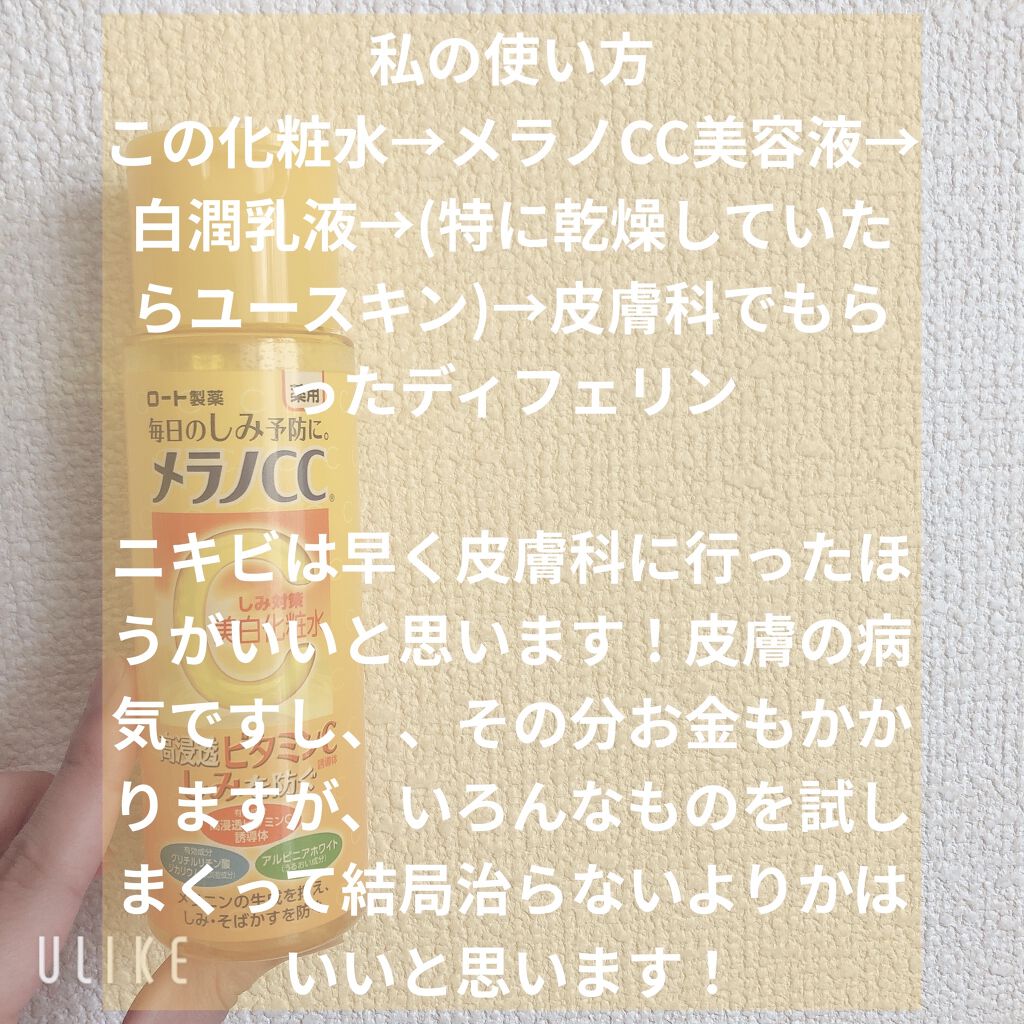 私の使い方
この化粧水→メラノCC美容液→
白潤乳液→(特に乾燥していた
らユースキン)→皮膚科でもら
ったディフェリン
ニキビは早く皮膚科に行ったほ
うがいいと思います！皮膚の病
気ですし、、その分お金もかか
りますが、いろんなものを試し
まくって結局治らないよりかは
いいと思います！
ロート製薬
薬用
毎日のしみ予防に。
メラノCC
しみ対策
美白化粧水
高浸透ビタミンC
誘導体
しみを防ぐ
誘導体
有効成分
グリチルリチン酸
アルピニアホワイト
(うるおい成分)
メラニンの生成を抑え、
しみ・そばかすを防
ULIKE